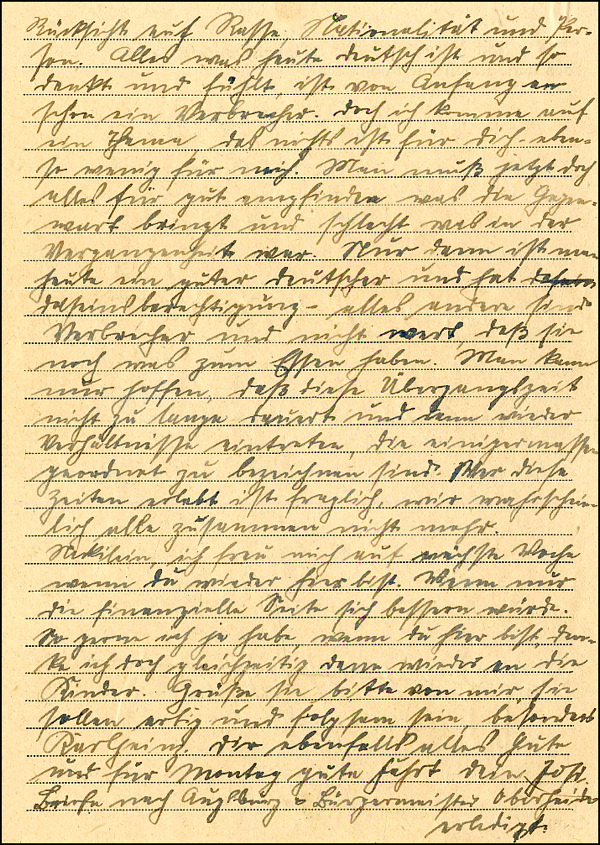 Rücksicht auf Rasse, Nationalität und Per-
son. Alles was heute deutsch ist und so
denkt und fühlt, ist von Anfang an
schon ein Verbrecher. Doch ich komme auf
ein Thema das nichts ist für Dich - eben-
so wenig für mich. Man muß jetzt doch
alles für gut empfinden was die Gegen-
wart bringt und schlecht was in der
Vergangenheit war. Nur dann ist man
heute ein guter deutscher und hat
daseinsberechtigung - alles andere sind
Verbrecher und nicht wert, daß sie
noch was zum Essen haben. Man kann
nur hoffen, daß diese Übergangszeit
nicht zu lange dauert und dann wieder
Verhältnisse eintreten, die einigermassen
geordnet zu bezeichnen sind. Wer diese
Zeiten erlebt ist fraglich, wir wahrschein-
lich alle zusammen nicht mehr.
ich freu mich auf nächste Woche
wenn du wieder hier bist. Wenn nur
die finanzielle Seite sich bessern würde.
So gerne ich ja habe, wenn du hier bist, den-
ke ich doch gleichzeitig dann wieder an die
Kinder. Grüße sie bitte von mir sie
sollen artig und folgsam sein, besonders
Karlheinz. Dir ebenfalls alles Gute
und für Montag gute Fahrt dein
Briefe nach Augsburg & Bürgermeister
erledigt.